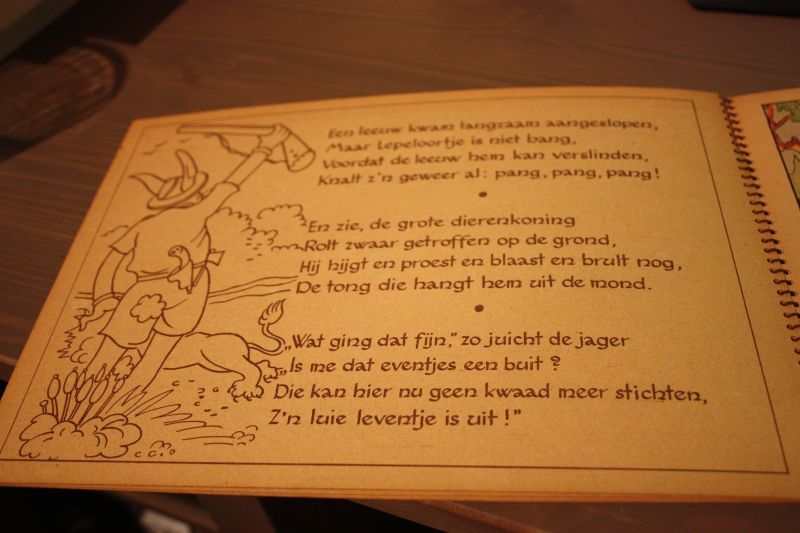 Een leeuw kwam langzaam aangeslopen,
Maar Lepeloortje is niet bang,
Voordat de leeuw hem kan verslinden,
Knalt z'n geweer al: pang, pang, pang!
En zie, de grote dierenkoning
Rolt zwaar getroffen op de grond,
Hij hijgt en proest en blaast en brult nog,
De tong die hangt hem uit de mond.
„Wat ging dat fijn,” zo juicht de jager
„Is me dat eventjes een buit?
Die kan hier nu geen kwaad meer stichten,
Z'n luie leventje is uit!”